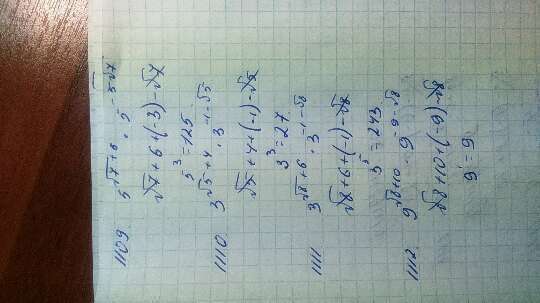 1109. 5^{√7+6} · 5^{-3-√7}
√7+6+(-3)-√7
5^3=125
1110. 3^{√5+4} · 3^{-1-√5}
√5+4+(-1)-√5
3^3=27
1111 3^{√8+6} · 3^{-1-√8}
√8+6+(-1)-√8
3^5=243
1112. 9^{√8+10} · 9^{-9-√8}
√8+10+(-9)-√8
9^1=9